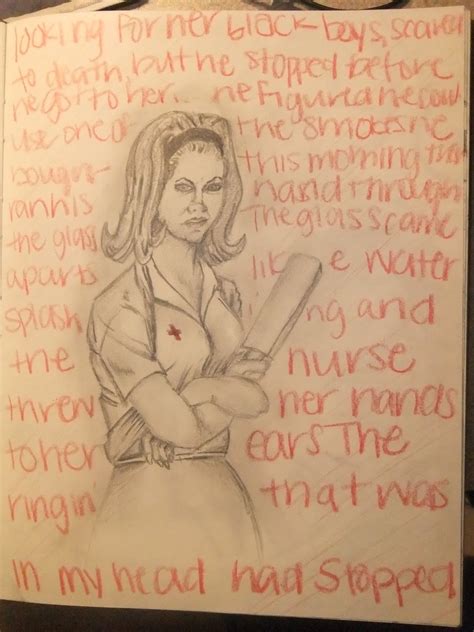 looking for her black boys, scared
to death, but he stopped before
he got to her... he figured he could
use one of the smokes he
bought this morning then
ran his hand through
the glass The glass came
apart like water
splash ng and
the nurse
threw her hands
to her ears The
ringin' that was
in my head had stopped